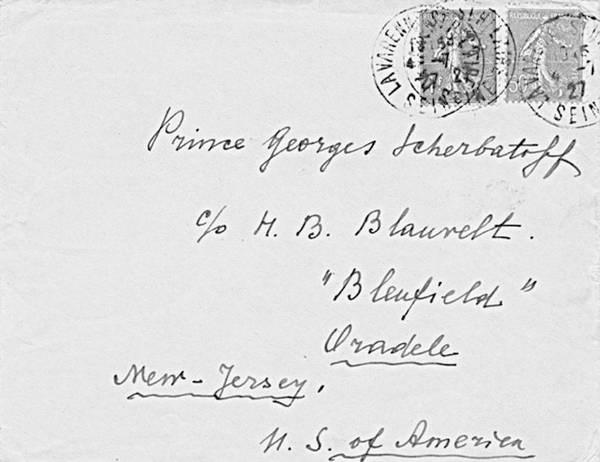 LA VARENNE ST HILAIRE
SEINE
27
LA VARENNE
SEINE
27
Prince Georges Scherbatoff
c/o H. B. Blauvelt.
"Blenfield"
Oradele
New-Jersey,
U. S. of America